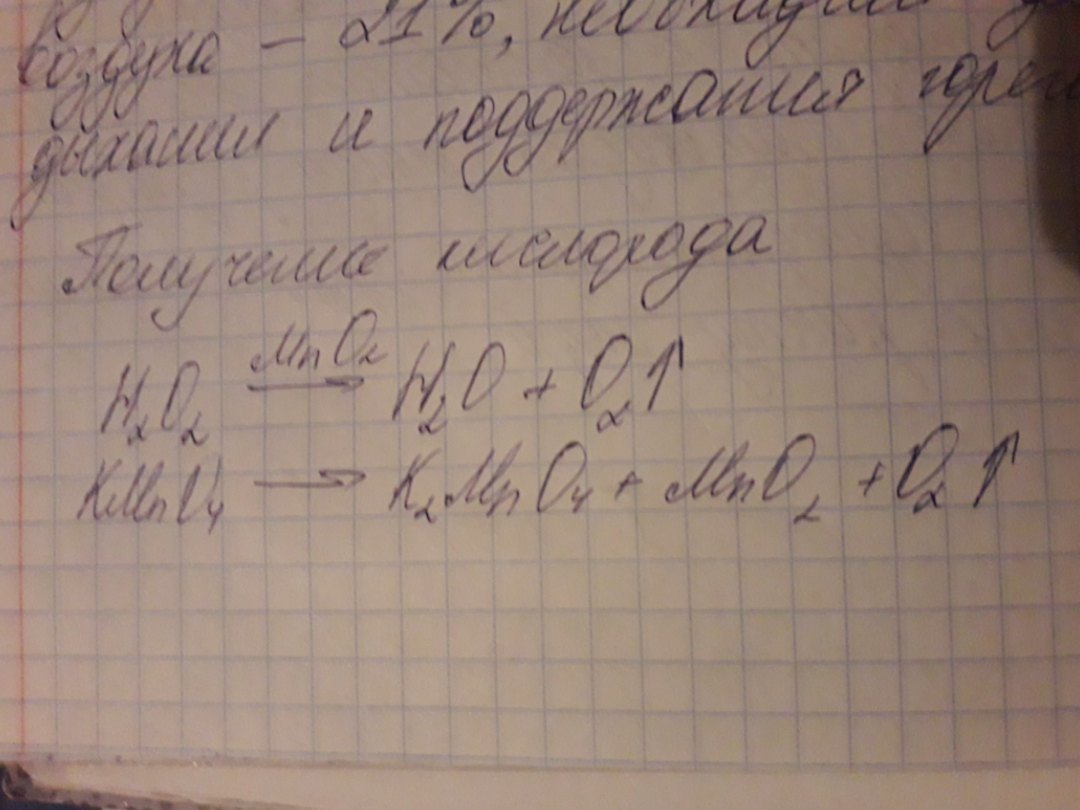 воздуха – 21%,
дыхания и поддержания
Получение кислорода
H₂O₂ MnO₂⟶ H₂O + O₂↑
KMnO₄ ⟶ K₂MnO₄ + MnO₂ + O₂↑